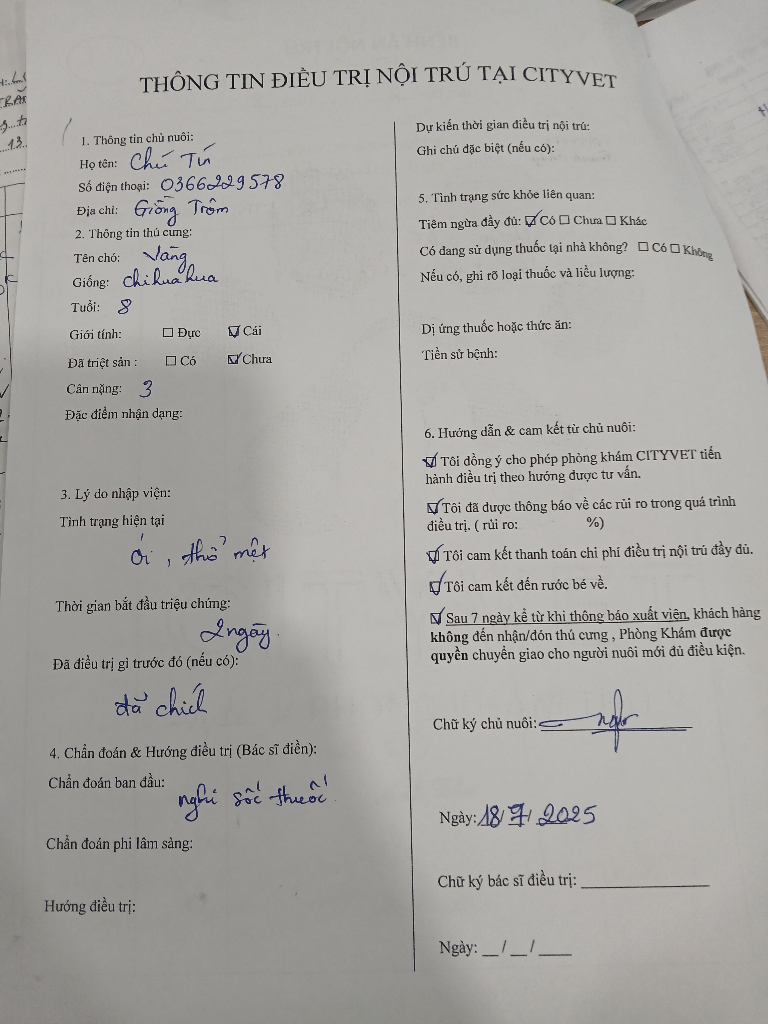 THÔNG TIN ĐIỀU TRỊ NỘI TRÚ TẠI CITYVET
1. Thông tin chủ nuôi:
Họ tên: Chú Tín
Số điện thoại: 0366229578
Địa chỉ: Giồng Trôm
2. Thông tin thú cưng:
Tên chó: Vàng
Giống: chihuahua
Tuổi: 8
Giới tính: ☐ Đực ☑ Cái
Đã triệt sản : ☐ Có ☑ Chưa
Cân nặng: 3
Đặc điểm nhận dạng:
3. Lý do nhập viện:
Tình trạng hiện tại
ói, thở mệt
Thời gian bắt đầu triệu chứng:
2 ngày.
Đã điều trị gì trước đó (nếu có):
đã chích
4. Chẩn đoán & Hướng điều trị (Bác sĩ điền):
Chẩn đoán ban đầu:
nghi sốc thuốc.
Chẩn đoán phi lâm sàng:
Hướng điều trị:
Dự kiến thời gian điều trị nội trú:
Ghi chú đặc biệt (nếu có):
5. Tình trạng sức khỏe liên quan:
Tiêm ngừa đầy đủ: ☑ Có ☐ Chưa ☐ Khác
Có đang sử dụng thuốc tại nhà không? ☐ Có ☐ Không
Nếu có, ghi rõ loại thuốc và liều lượng:
Dị ứng thuốc hoặc thức ăn:
Tiền sử bệnh:
6. Hướng dẫn & cam kết từ chủ nuôi:
☑ Tôi đồng ý cho phép phòng khám CITYVET tiến
hành điều trị theo hướng được tư vấn.
☑ Tôi đã được thông báo về các rủi ro trong quá trình
điều trị. ( rủi ro: %)
☑ Tôi cam kết thanh toán chi phí điều trị nội trú đầy đủ.
☑ Tôi cam kết đến rước bé về.
☑ Sau 7 ngày kể từ khi thông báo xuất viện, khách hàng
không đến nhận/đón thú cưng , Phòng Khám được
quyền chuyển giao cho người nuôi mới đủ điều kiện.
Chữ ký chủ nuôi:
Ngày: 18/7/2025
Chữ ký bác sĩ điều trị: ____________
Ngày: __/__/____